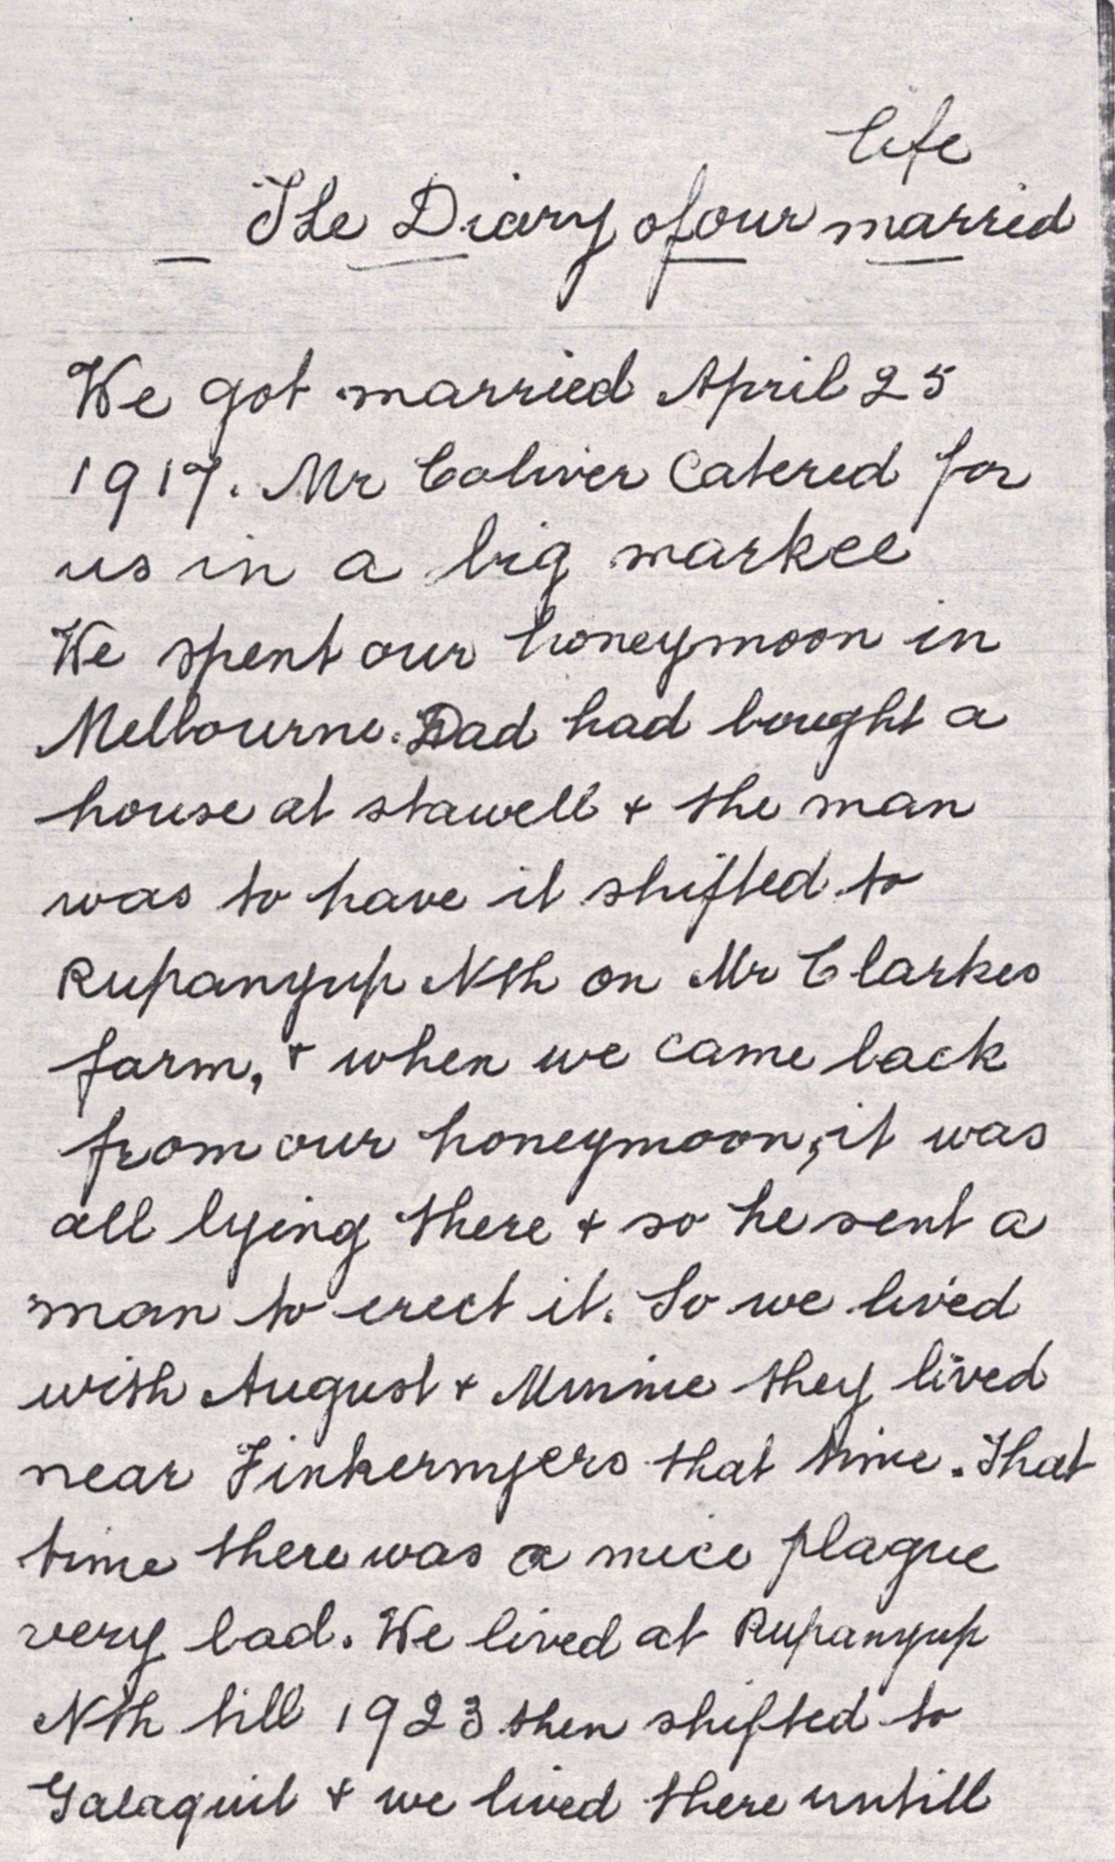 life
The Diary of our marrid
We got married April 25
1917. Mr Coliver Catered for
us in a big markee
We spent our honeymoon in
Melbourne. Dad had bought a
house at stawell + the man
was to have it shifted to
Rupanyup Nth on Mr Clarkes
farm, + when we came back
from our honeymoon, it was
all lying there + so he sent a
man to erect it. So we lived
with August + Minnie they lived
near Finkermyers that time. That
time there was a mice plague
very bad. We lived at Rupanyup
Nth till 1923 then shifted to
Galaquil + we lived there untill